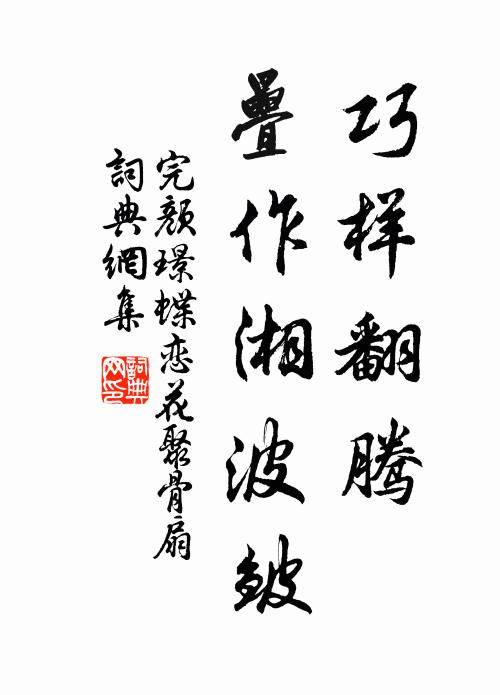 巧样翻腾
疊作湘波皱
完颜璟蝶恋花聚骨扇
詞典網集
詞典網印